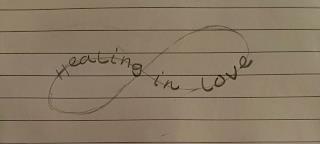 Healing in Love